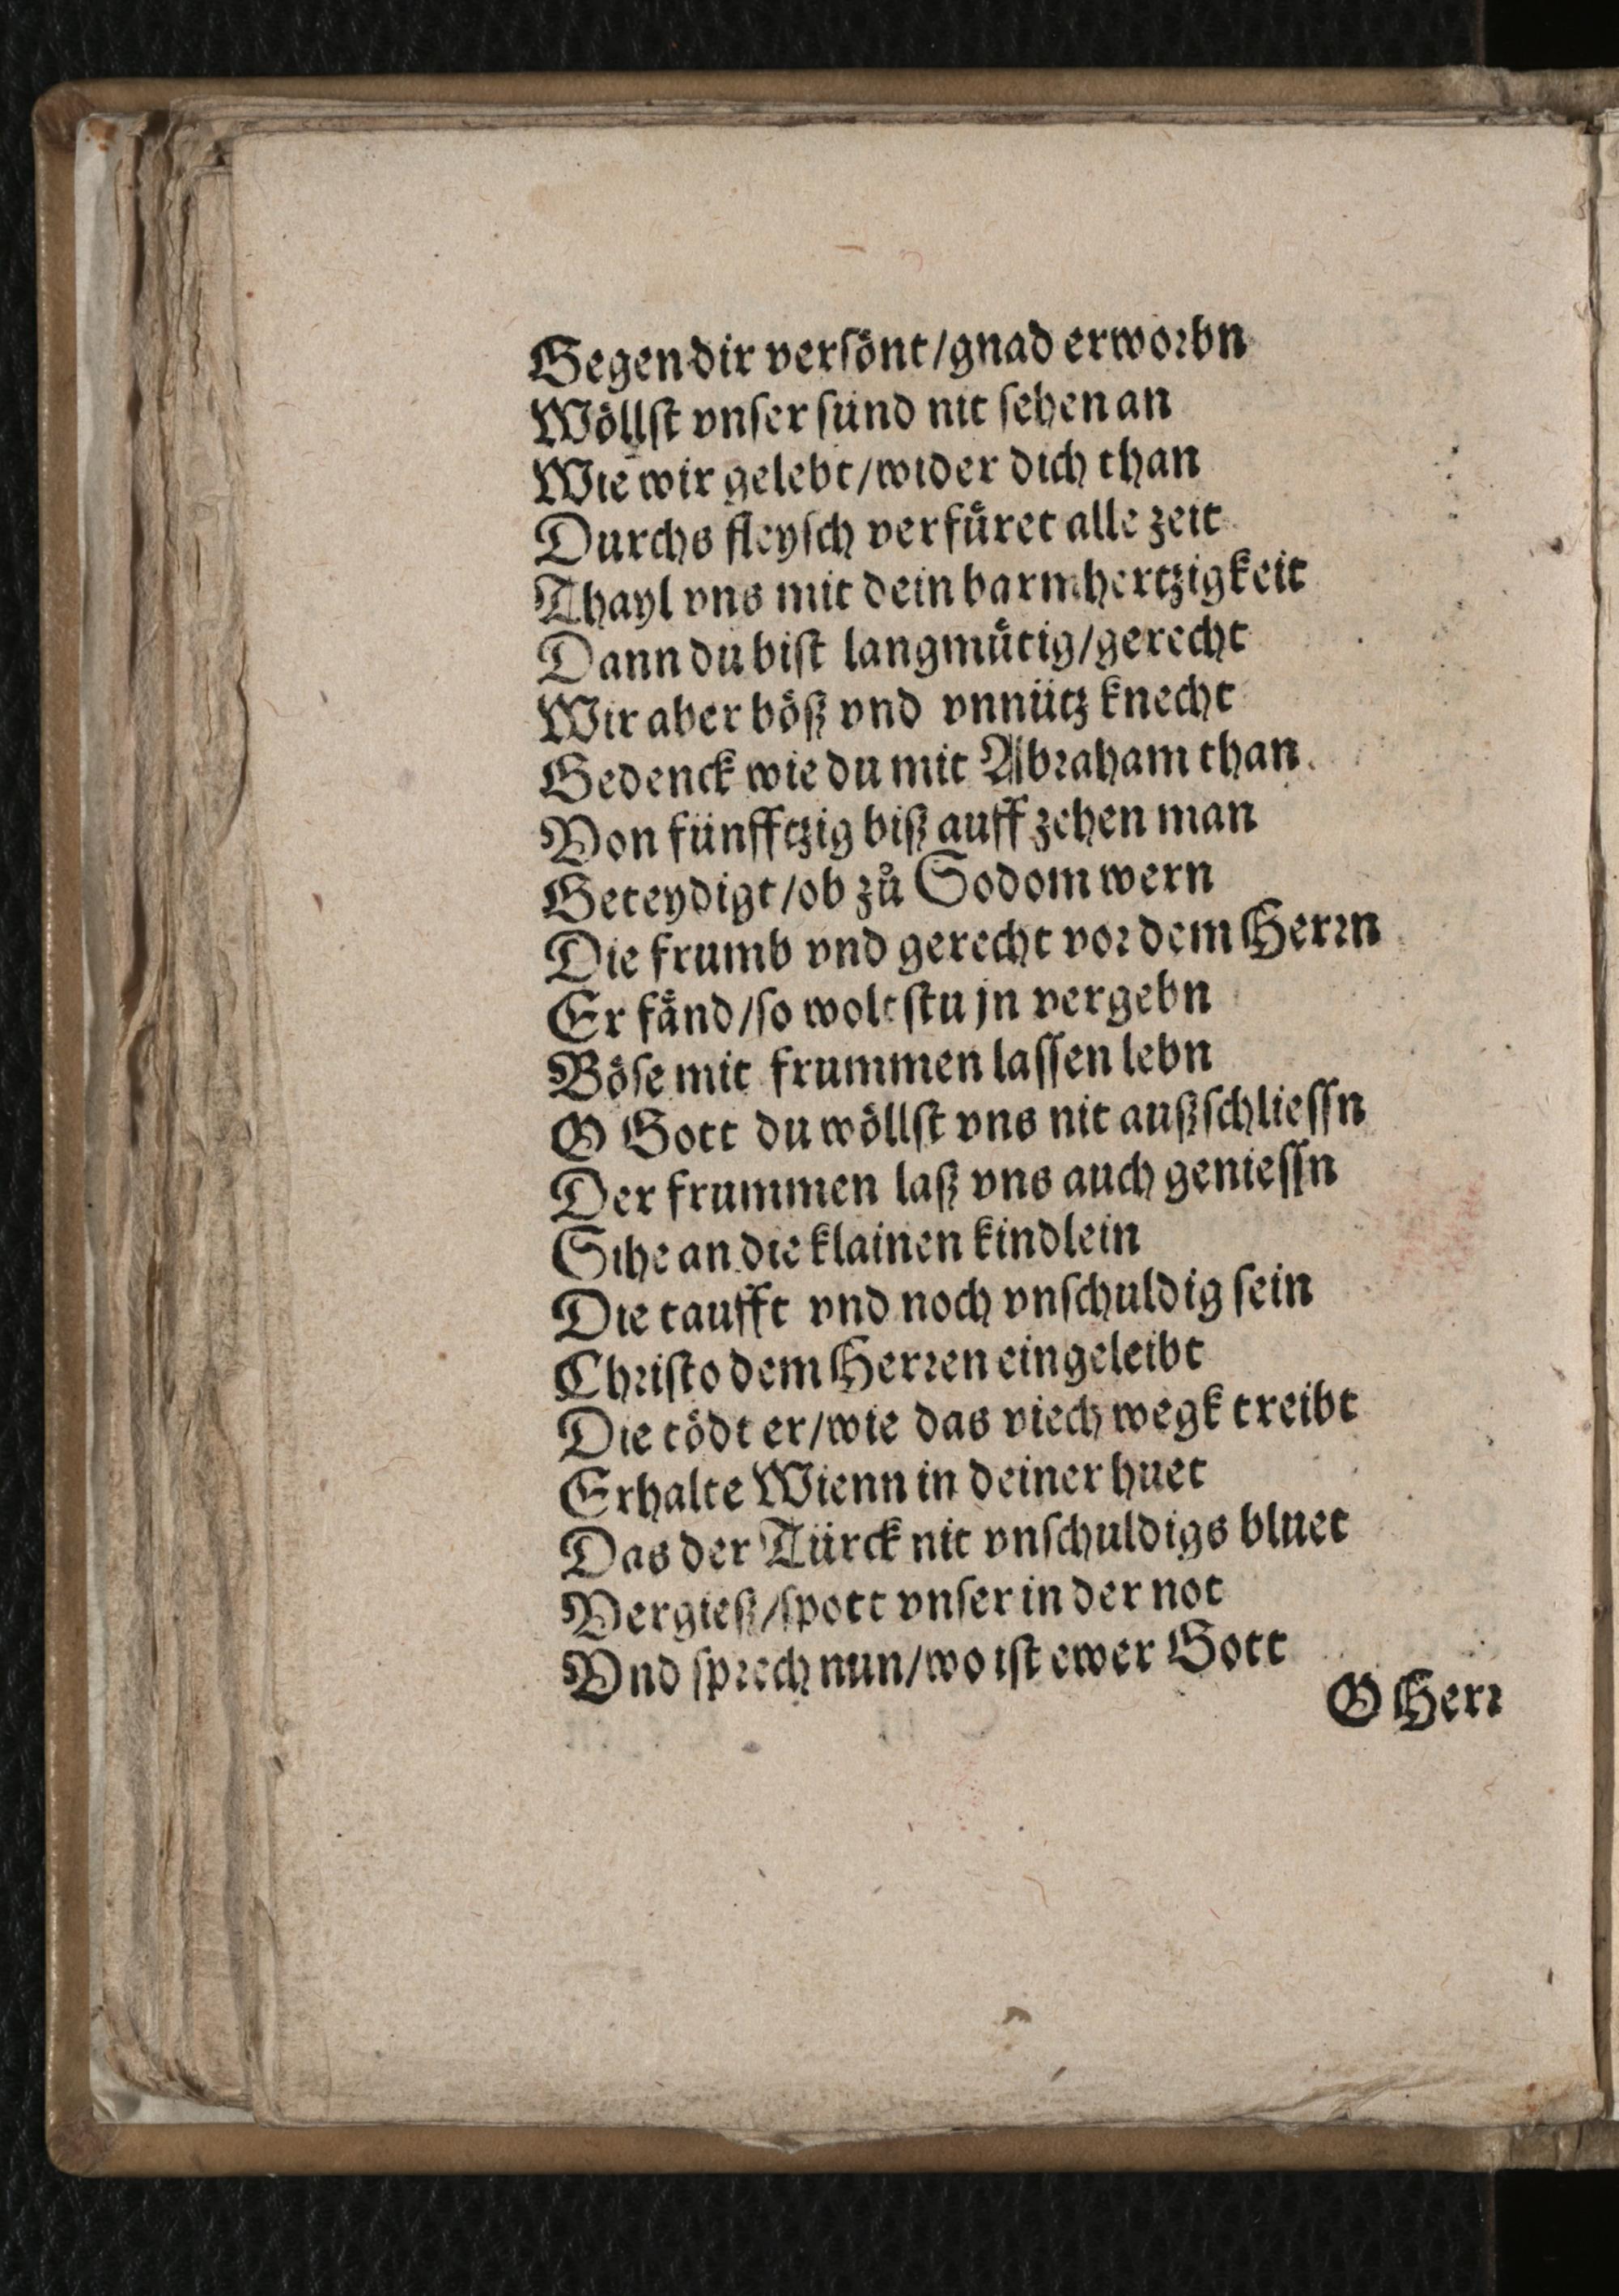 Gegen dir verſoͤnt/gnad erworbn
Woͤllſt vnſer ſünd nit ſehen an
Wie wir gelebt/wider dich than
Durchs fleyſch verfuͤret alle zeit
Thayl vns mit dein barmhertzigkeit
Dann du biſt langmuͤtig/gerecht
Wir aber boͤß vnd vnnütz knecht
Gedenck wie du mit Abraham than.
Von fünfftzig biß auff zehen man
Geteydigt/ob zů Sodom wern
Die frumb vnd gerecht vor dem Herrn
Er faͤnd/ſo woltſtu jn vergebn
Boͤſe mit frummen laſſen lebn
O Gott du woͤllſt vns nit außſchlieſſn
Der frummen laß vns auch genieſſn
Sihe an die klainen kindlein
Die taufft vnd noch vnſchuldig ſein
Chriſto dem Herren eingeleibt
Die toͤdt er/wie das viech wegk treibt
Erhalte Wienn in deiner huet
Das der Türck nit vnſchuldigs bluet
Vergieß/ſpott vnſer in der not
Vnd ſprech nun/wo iſt ewer Gott
O Herr